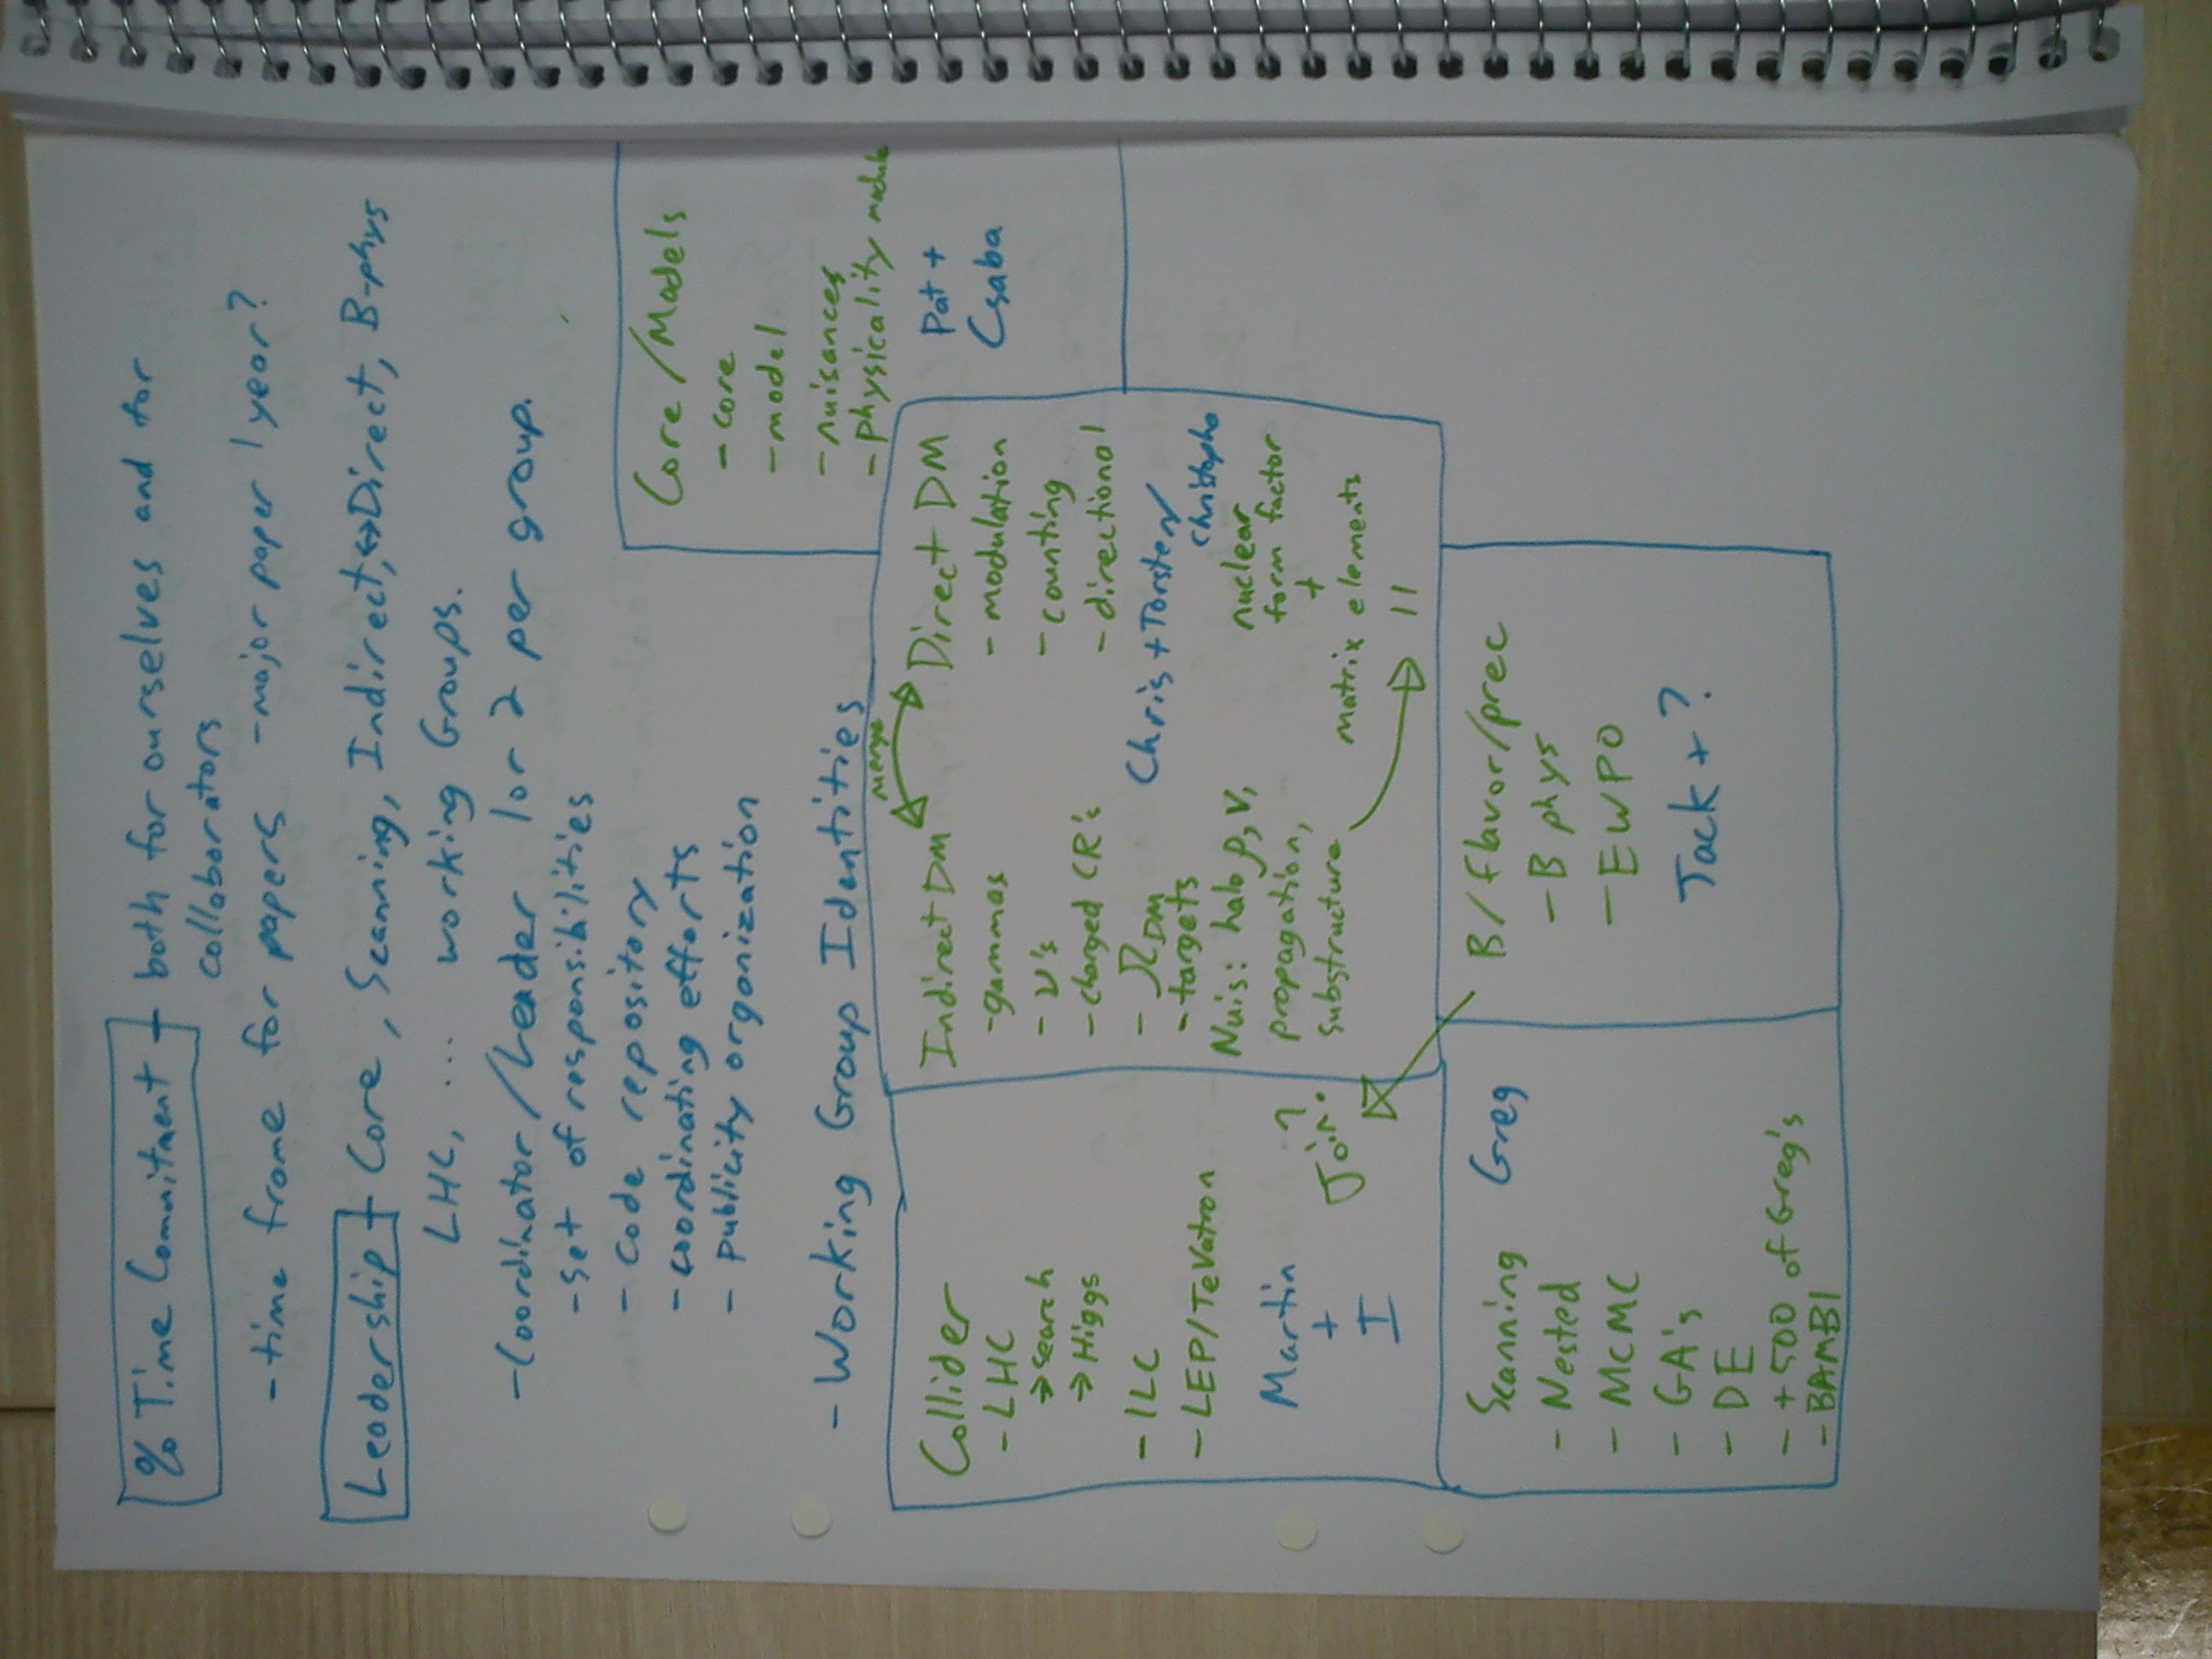 % Time Commitment - both for ourselves and for
collaborators
- time frame for papers - major paper 1 year?
Leadership - Core, Scanning, Indirect,↔Direct, B-phys
LHC, ... working Groups.
- Coordinator/Leader 1 or 2 per group.
- set of responsibilities
- code repository
- coordinating efforts
- publicity organization
Core/Models
- core
- model
- nuisances
- physicality module
Pat +
Csaba
- Working Group Identities
Collider
- LHC
→ search
→ Higgs
- ILC
- LEP/TeVatron
Martin
+
I
Join?
merge
Indirect DM
- gammas
- ν's
- charged CR's
- Ω_DM
- targets
Nuis: halo ρ, v,
propagation,
substructure
Direct DM
- modulation
- counting
- directional
Chris + Torsten/
Christophe
nuclear
form factor
+
matrix elements
11
Scanning Greg
- Nested
- MCMC
- GA's
- DE
- +500 of Greg's
- BAMBI
B/flavor/prec
- B phys
- EWPO
Jack + ?